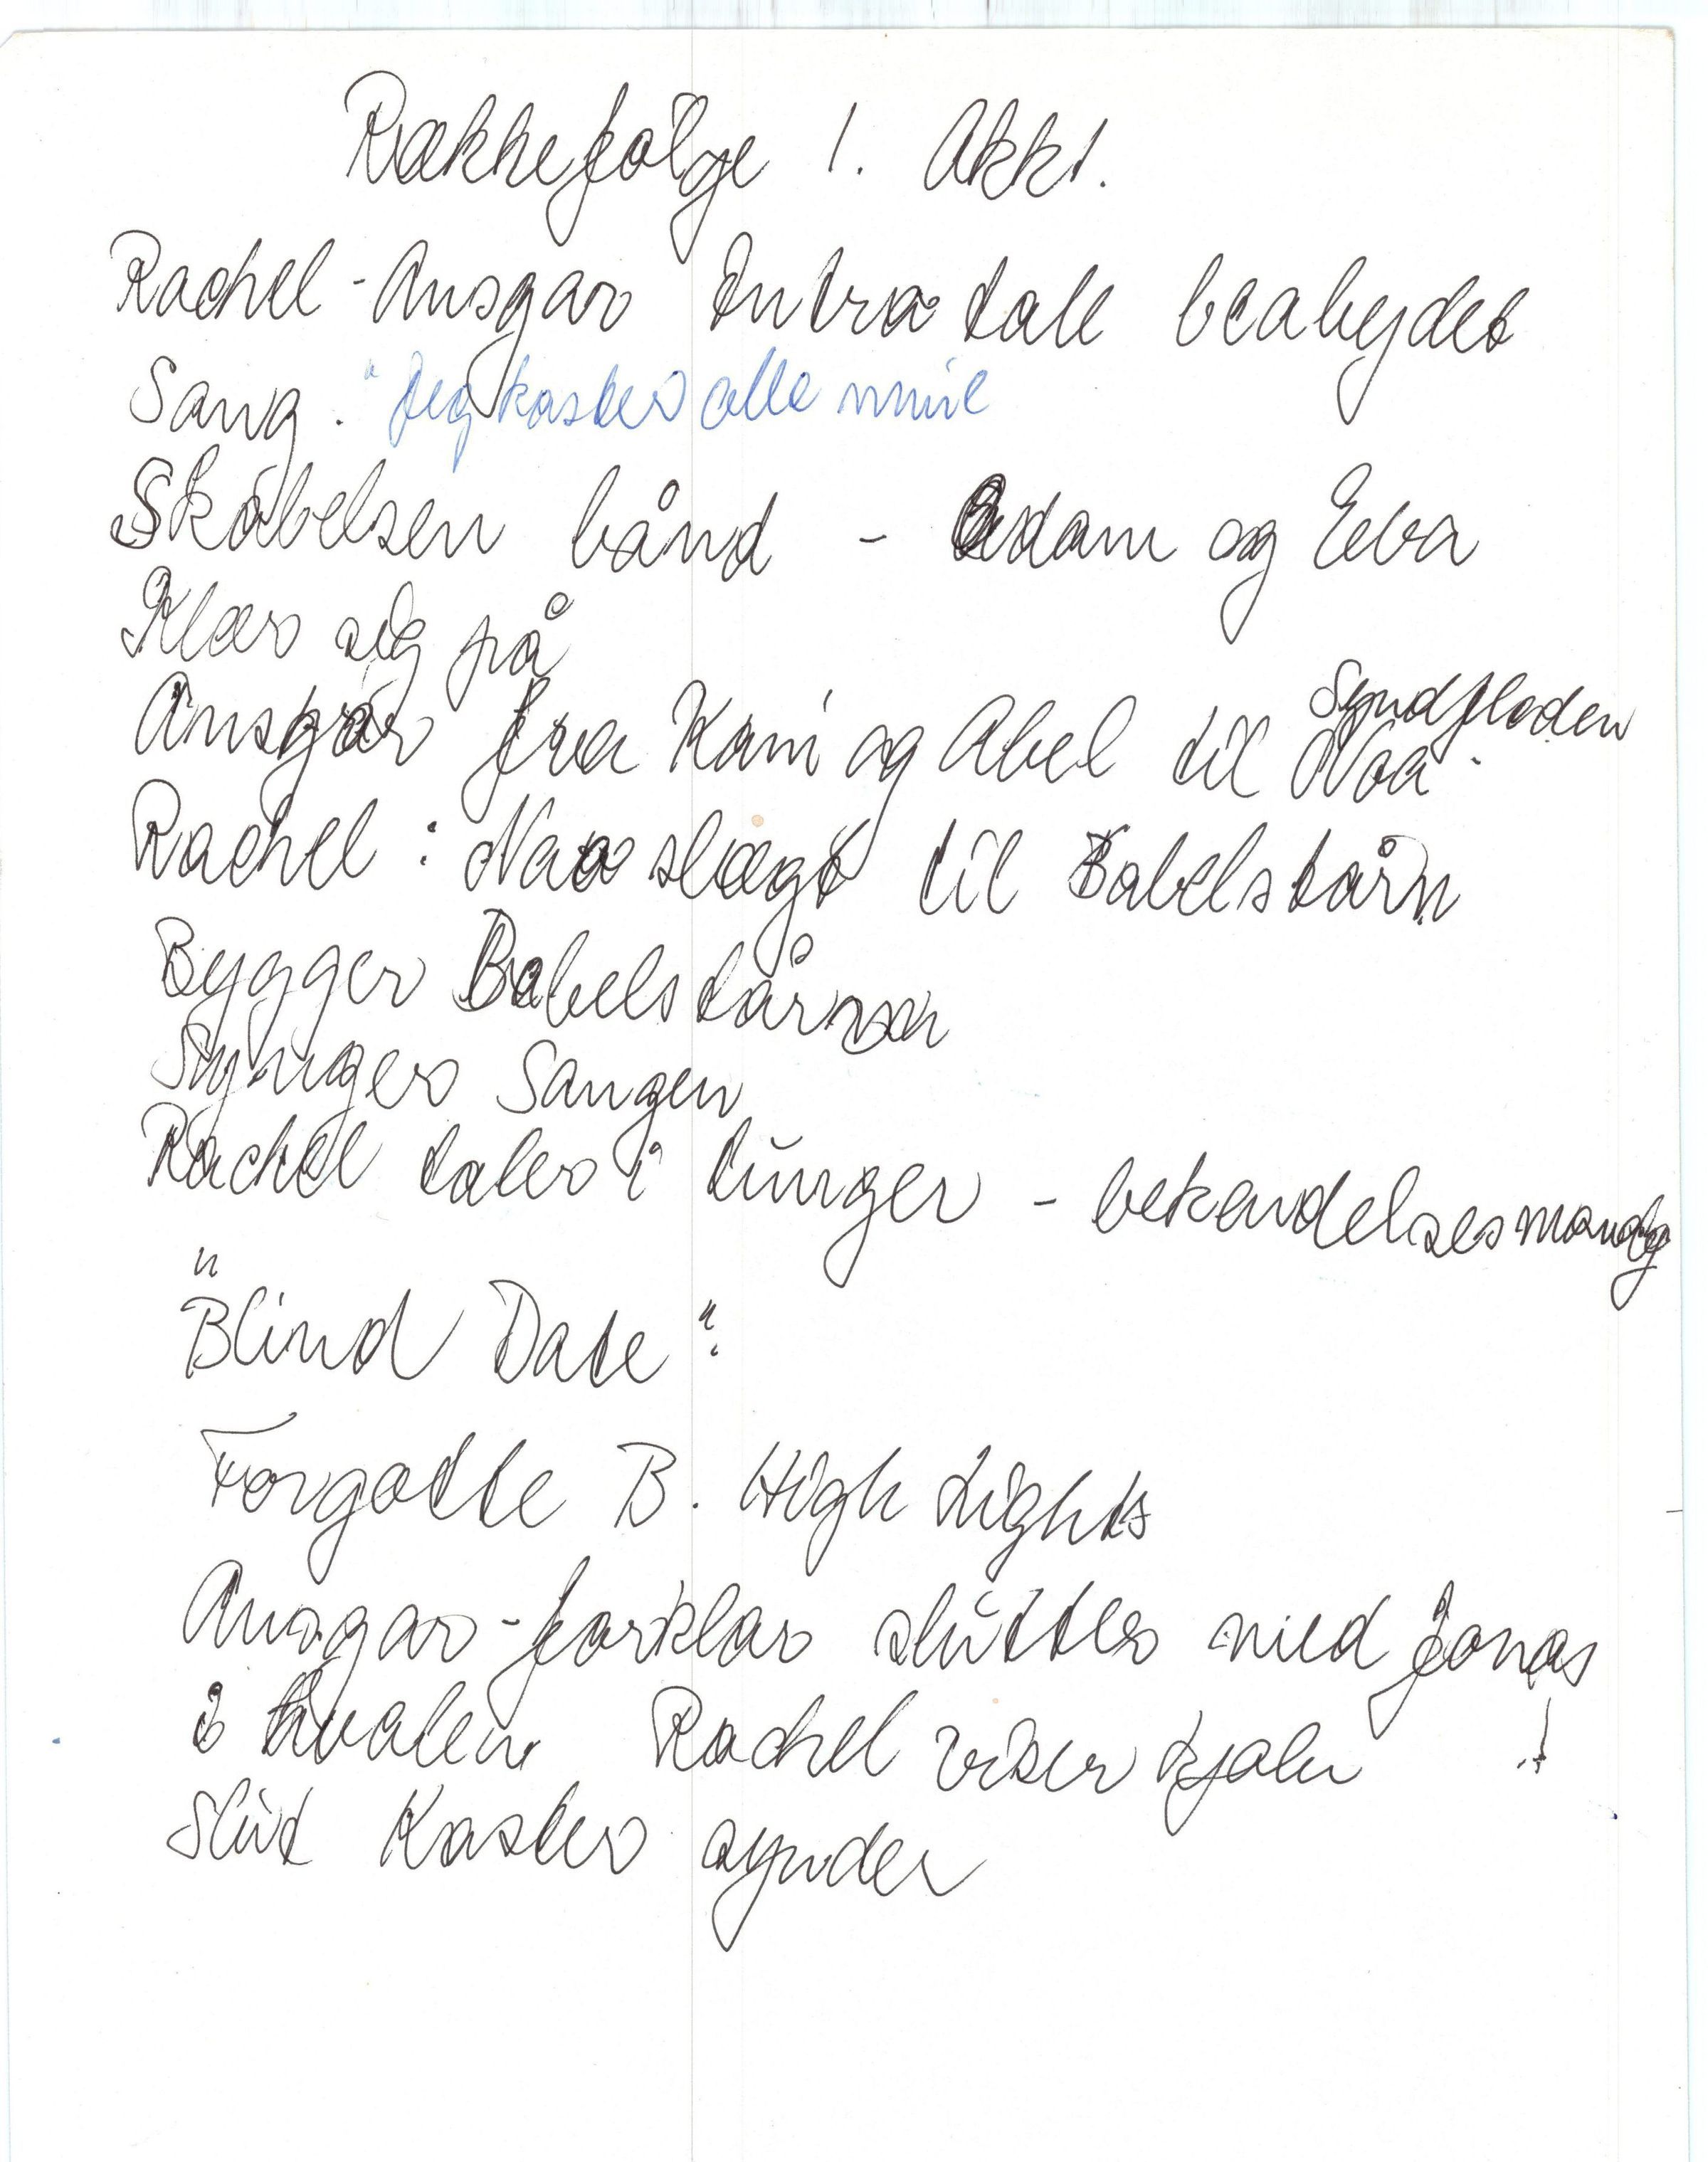 Rækkefølge 1. Akt.
Rachel - Ansgar Intro tale
Sang. "Jeg kaster alle mine
Skabelsen bånd - Adam og Eva
Klær sig på
Ansgar fra Kain og Abel til Noa - Syndfloden
Rachel: Noa slægt til Babelstårn
Bygger Babelstårnen
Synger Sangen
Rachel taler i tunger - bekendelses
"Blind Date"
Forgatte B. High Lights
Ansgar - forklar slutter med Jonas
i hvalen Rachel viser kjole !
Slut Kaster synder